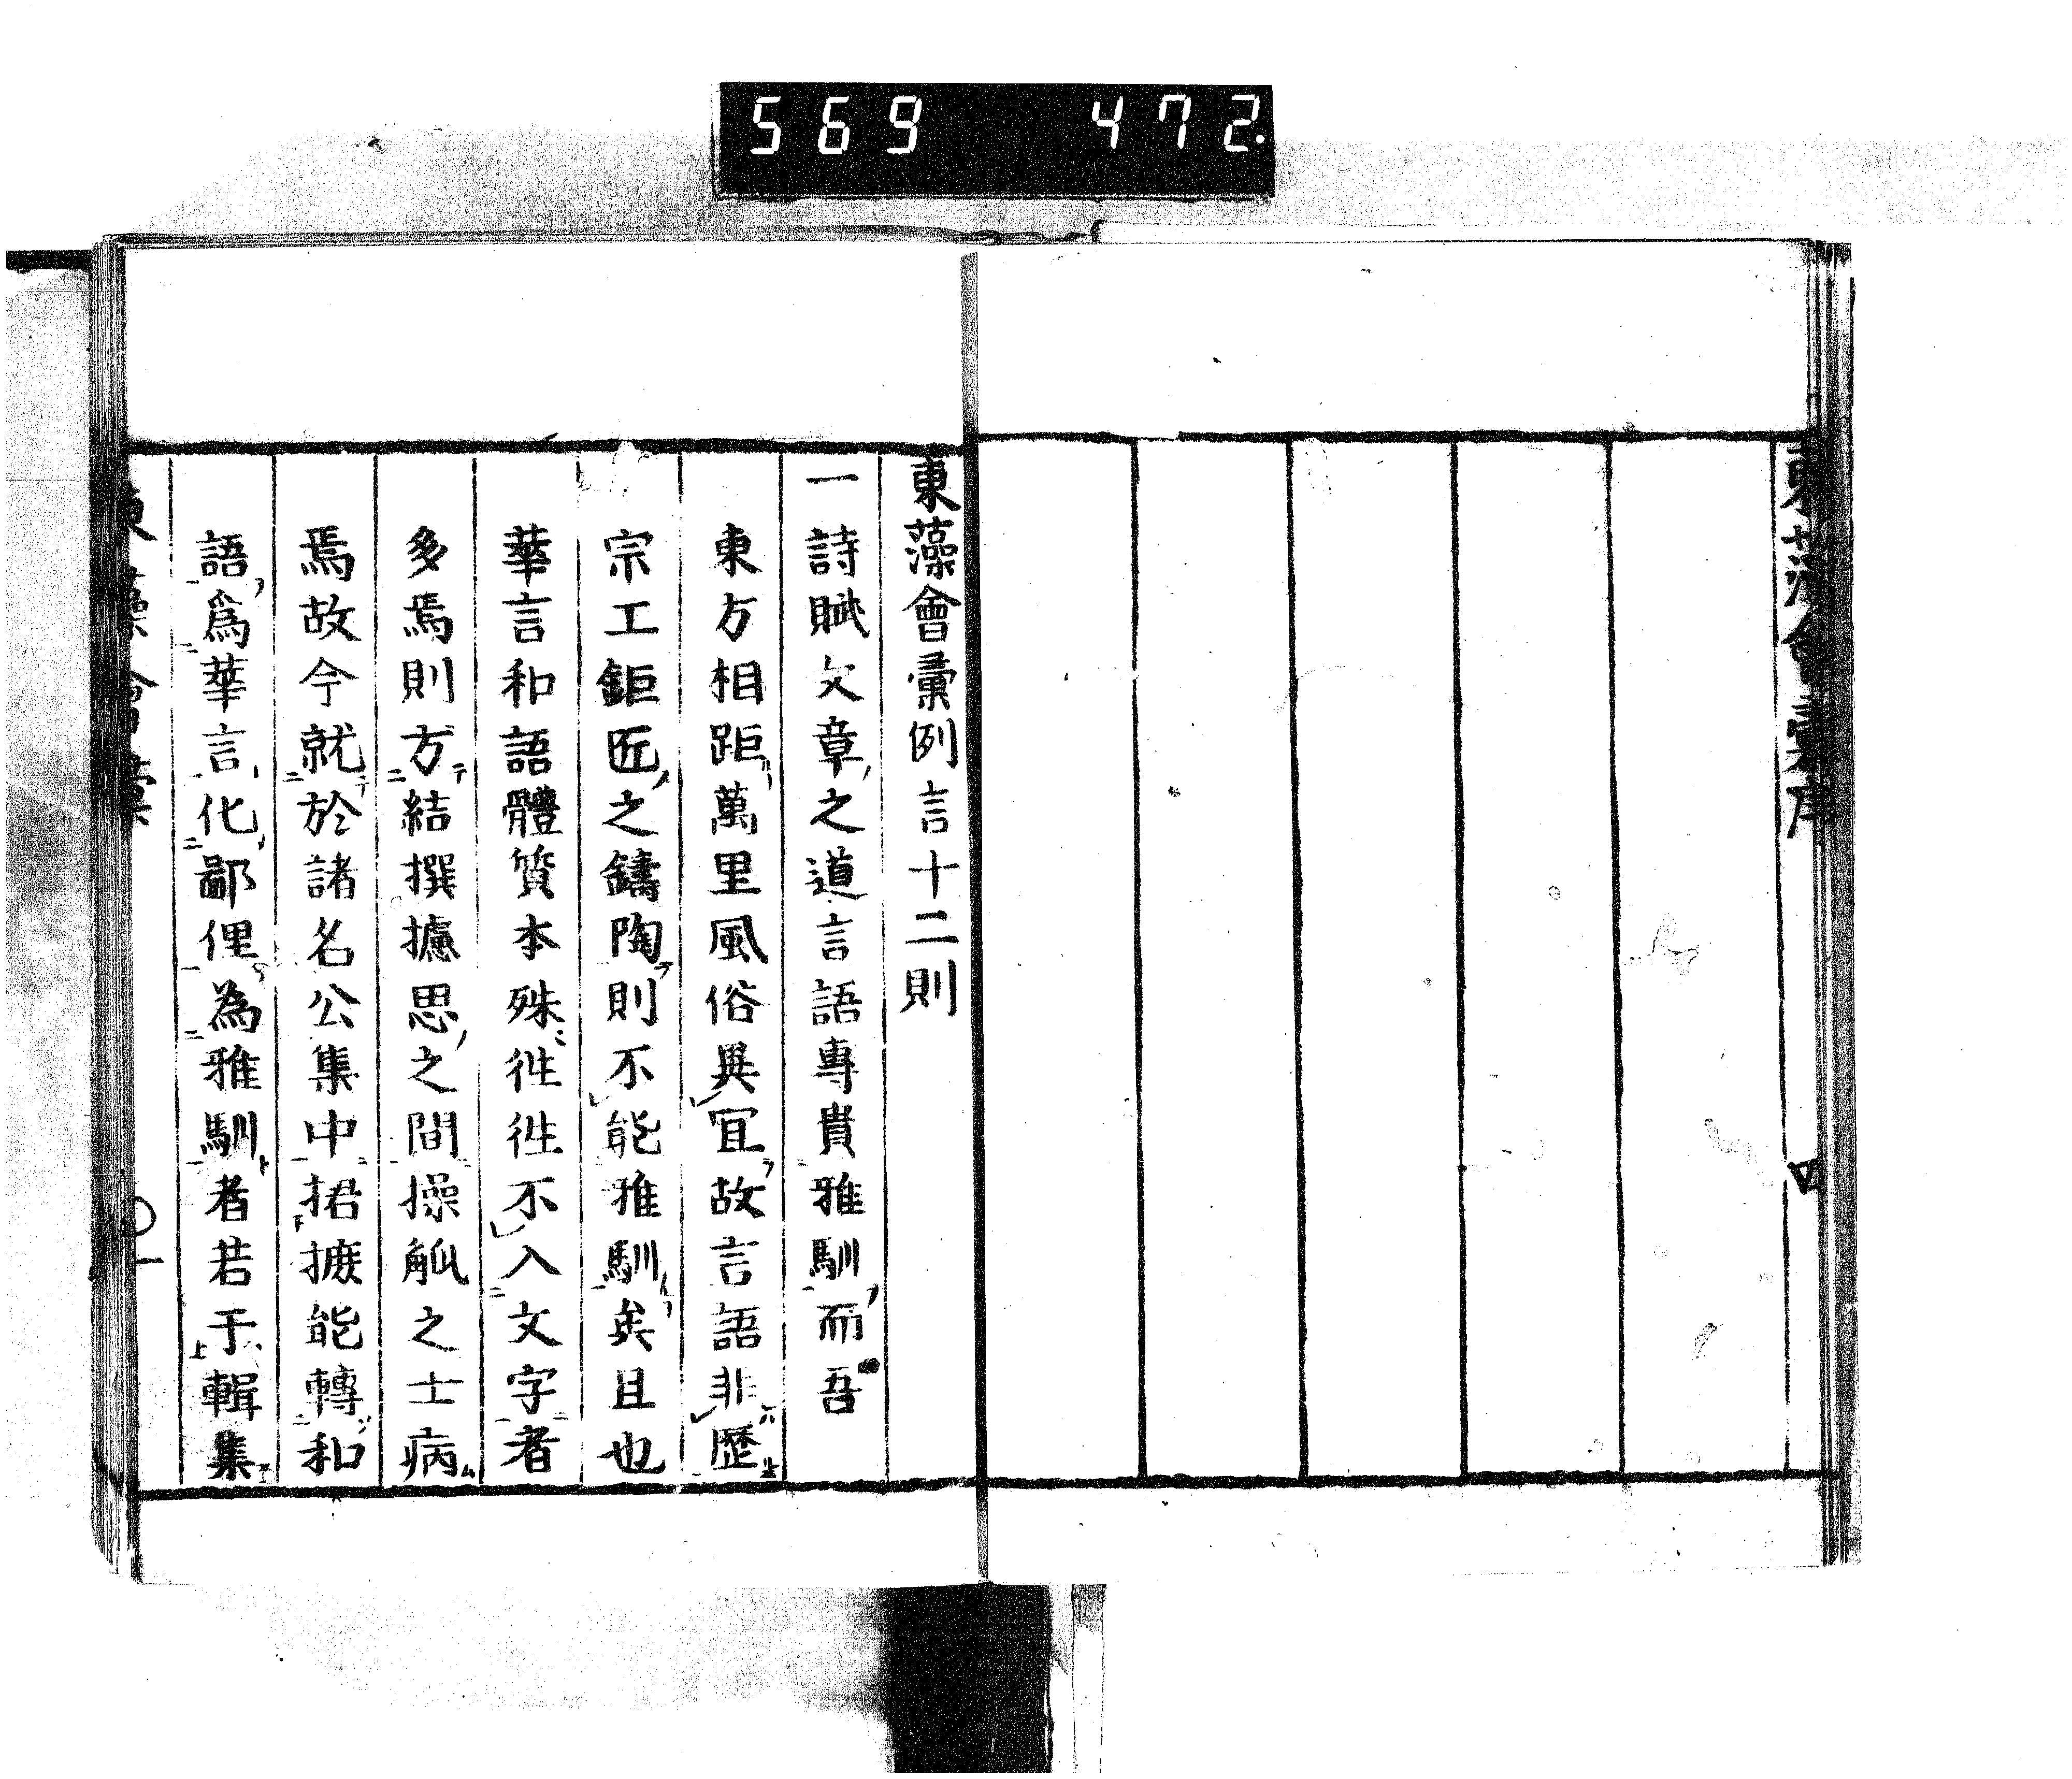 569 472.
東藻會彙序
四
東藻會彙例言十二則
一詩賦文章之道言語專貴雅馴而吾
東方相距萬里風俗異宜故言語非歷
宗工鉅匠之鑄陶則不能雅馴矣且也
華言和語體質本殊徃徃不入文字者
多焉則方結撰攄思之間操觚之士病
焉故今就於諸名公集中捃摭能轉和
語爲華言化鄙俚為雅馴者若于輯集
東藻會彙
〇一